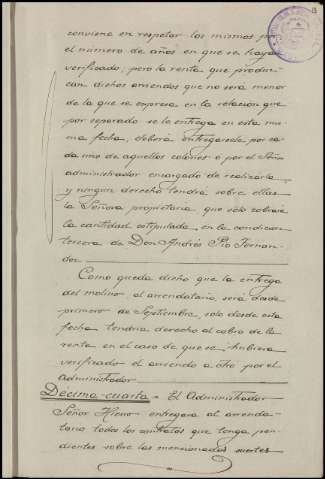 conviene en respetar los mismos por
el número de años en que se hayan
verificado; pero la renta que produz-
can dichos arriendos que no será menor
de la que se expresa en la relación que
por separado se le entrega en esta mis-
ma fecha, deberá entregarsele por ca-
da uno de aquellos colonos o por el Señor
administrador encargado de realizarla
y ningun derecho tendrá sobre ellas
la Señora propietaria, que sólo cobrará
la cantidad estipulada, en la condicion
tercera de Don Andrés Pio Fernan-
dez
Como queda dicho que la entrega
del molino al arrendatario, será desde
primero de Septiembre, solo desde esta
fecha tendria derecho al cobro de la
renta en el caso de que se hubiera
verificado el arriendo a otro por el
Administrador
Décima-cuarta - El Administrador
Señor entregara al arrenda-
tario todos los contratos que tenga pen-
dientes sobre las mencionadas suertes